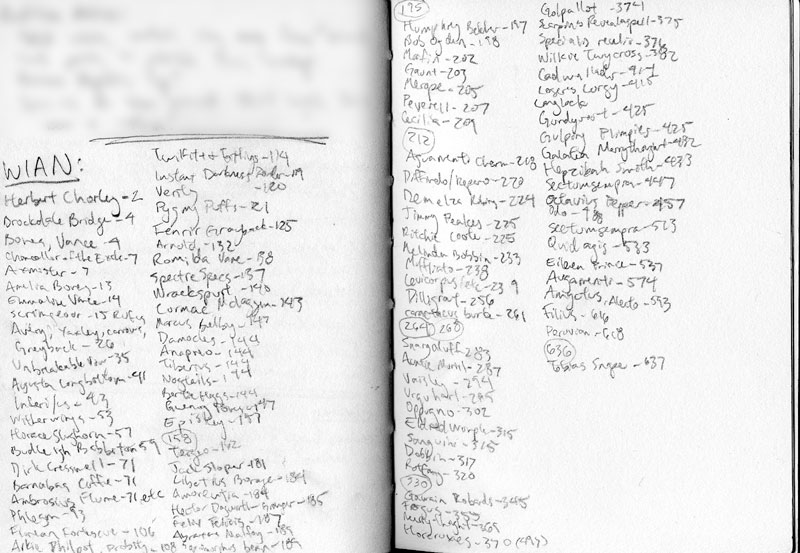 WIAN:
Herbert Chorley - 2
Brockdale Bridge - 4
Bones, Vance - 4
Chancellor of the Exch - 7
Axemaster - 7
Amelia Bones - 13
Emmeline Vance - 14
Scrimgeour - 15 Rufus
Avery, Yaxley, Carrows,
Greyback - 26
Unbreakable Vow - 35
Augusta Longbottom - 41
Inferi/us - 43
Witherwings - 53
Horace Slughorn - 57
Budleigh Babberton 59
Dirk Cresswell - 71
Barnabas Cuffe - 71
Ambrosius Flume - 71, etc
Phlegm - 93
Florean Fortescue - 106
Arkie Philpot, Probity - 108
Twilfitt + Tattings - 114
Instant Darkness Powder - 119
Verity - 120
Pygmy Puffs - 121
Fenrir Greyback - 125
Arnold - 132
Romilda Vane - 138
Spectre Specs - 137
Wrackspurt - 140
Cormac McLaggen - 143
Marcus Belby - 147
Damocles - 144
Anapneo - 144
Tiberius - 144
Nogtails - 144
Bertie Higgs - 144
Gwenog Jones - 147
Episkey - 157
158
Tergo - 172
Jack Sloper - 181
Libatius Borage - 184
Amortentia - 184
Hector Dagworth-Granger - 185
Felix Felicis - 187
Abraxas Malfoy - 189
Sopophorous bean - 189
195
Humphrey Belcher - 197
Bob Ogden - 198
Morfin - 202
Gaunt - 203
Merope - 205
Peverell - 207
Cecilia - 209
212
Aguamenti Charm - 218
Diffindo/Reparo - 220
Demelza Robins - 224
Jimmy Peakes - 225
Ritchie Coote - 225
Melinda Bobbin - 233
Muffliato - 238
Levicorpus/etc - 239
Dilligrout - 256
Caractacus Burke - 261
264 268
Snargaluff 283
Auntie Muriel - 287
Vaisey - 294
Urquhart - 295
Oppugno - 302
Eldred Worple - 315
Sanguini - 315
Dobbin - 317
Rotfang - 320
330
Gawain Robards - 345
Fergus - 355
Merrythought - 369
Horcruxes - 370 (494)
Golpalott - 374
Scarpin's Revelaspell - 375
Specialis revelio - 376
Wilkie Twycross - 382
Cadwallader - 414
Lasers Corgy - 415
Loxylock
Gurdyroot - 425
Gulping Plimpies - 425
Galatea Merrythought - 432
Hepzibah Smith - 433
Sectumsempra - 447
Octavius Pepper - 457
Odo - 488
Sectumsempra - 513
Quid agis - 533
Eileen Prince - 537
Augamenti - 574
Amycus, Alecto - 593
Filius - 616
Peruvian - 618
636
Tobias Snape - 637